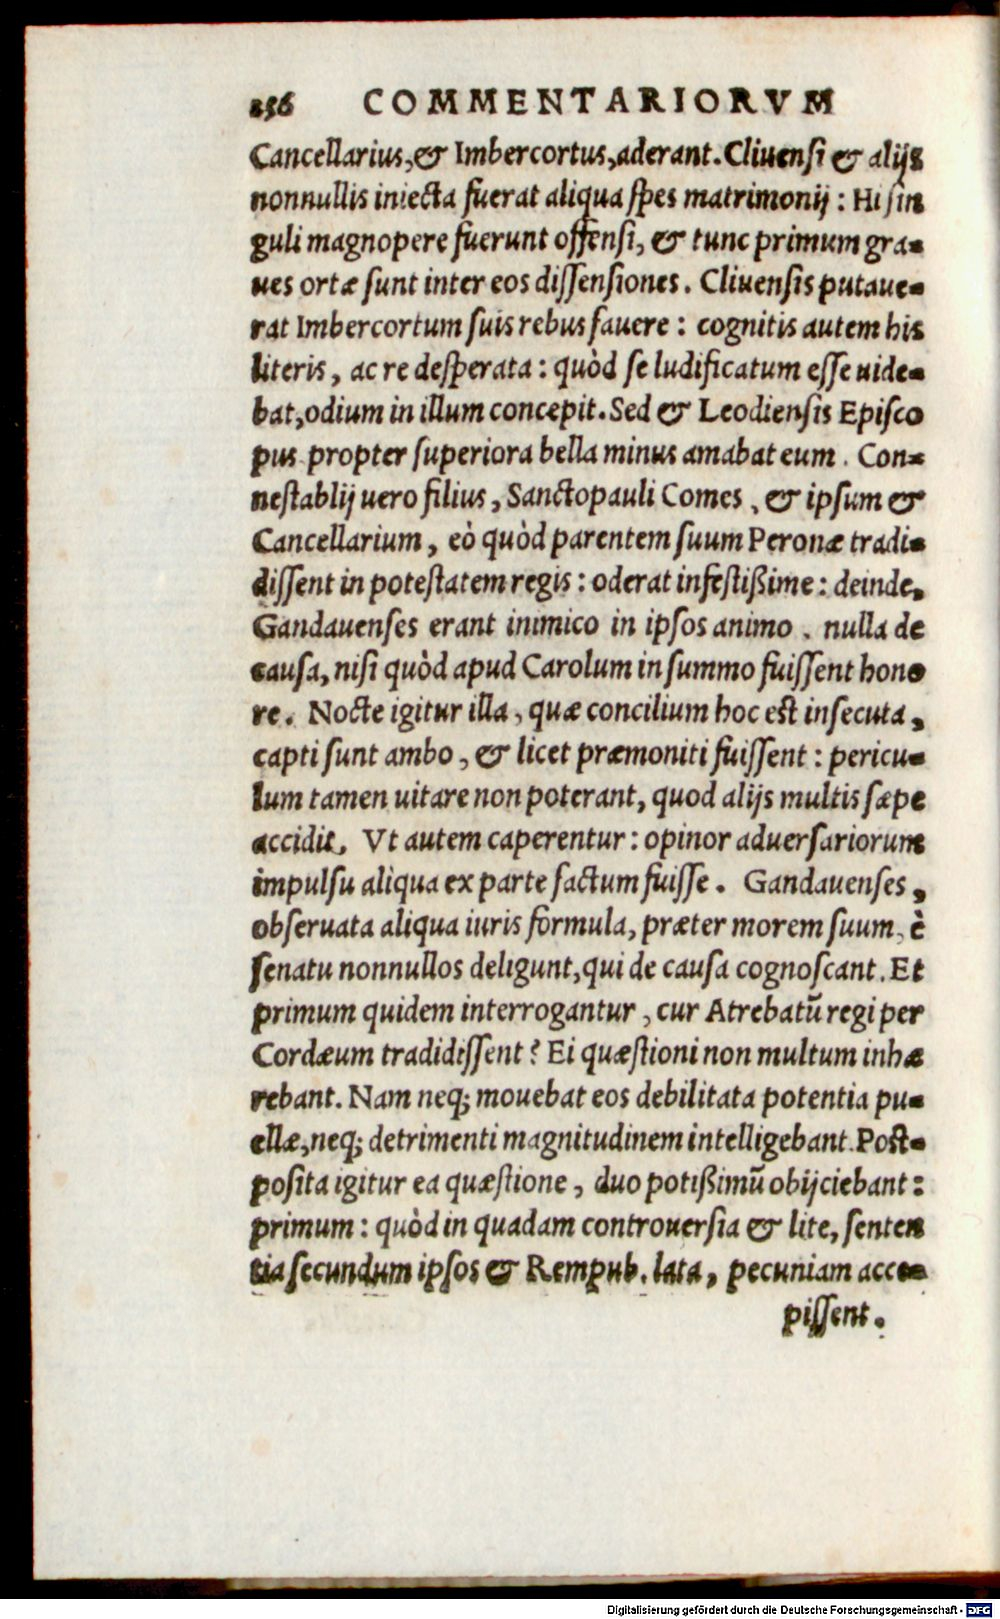 256 COMMENTARIORVM
Cancellarius,& Imbercortus,aderant. Cliuensi & alijs
nonnullis iniecta fuerat aliqua spes matrimonij : Hi sin
guli magnopere fuerunt offensi, & tunc primum gra-
ues ortæ sunt inter eos dissensiones. Cliuensis putaue-
rat Imbercortum suis rebus fauere : cognitis autem his
literis, ac re desperata : quòd se ludificatum esse uide-
bat,odium in illum concepit. Sed & Leodiensis Episco
pus propter superiora bella minus amabat eum. Con-
nestablij uero filius, Sanctopauli Comes, & ipsum &
Cancellarium, eò quòd parentem suum Peronæ tradi-
dissent in potestatem regis : oderat infestißime : deinde,
Gandauenses erant inimico in ipsos animo. nulla de
causa, nisi quòd apud Carolum in summo fuissent hono
re. Nocte igitur illa, quæ concilium hoc est insecuta,
capti sunt ambo, & licet præmoniti fuissent : pericu-
lum tamen uitare non poterant, quod alijs multis sæpe
accidit. Vt autem caperentur : opinor aduersariorum
impulsu aliqua ex parte factum fuisse. Gandauenses,
obseruata aliqua iuris formula, præter morem suum, è
senatu nonnullos deligunt,qui de causa cognoscant. Et
primum quidem interrogantur, cur Atrebatū regi per
Cordæum tradidissent? Ei quæstioni non multum inhæ
rebant. Nam neq; mouebat eos debilitata potentia pu-
ellæ,neq; detrimenti magnitudinem intelligebant. Post-
posita igitur ea quæstione, duo potißimū obijciebant :
primum : quòd in quadam controuersia & lite, senten
tia secundum ipsos & Rempub. lata, pecuniam acce-
pissent.
Digitalisierung gefördert durch die Deutsche Forschungsgemeinschaft - DFG